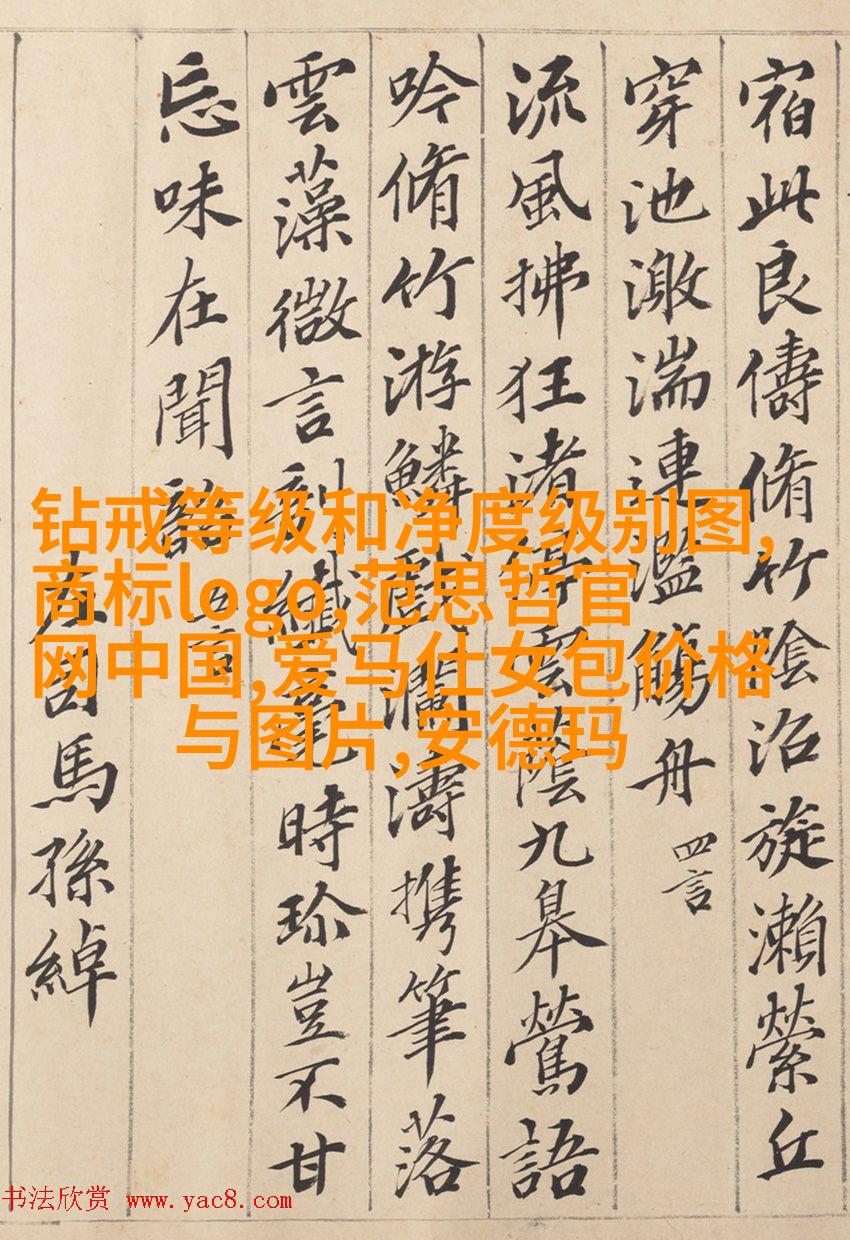 宿此良儔脩竹陰沼旋瀨縈丘
穿池激湍連濫觴舟 四言
流風拂狂渚停雲蔭九皋鶯語
吟脩竹游鱗戲瀾濤携筆落
雲藻微言剖纖毫時珍豈不甘
忘味在聞韶 五言
左司馬孫綽
钻戒等级和净度级别图,
商标logo,范思哲官
网中国,爱马仕女包价格
与图片,安德玛
书法欣赏 www.yac8.com